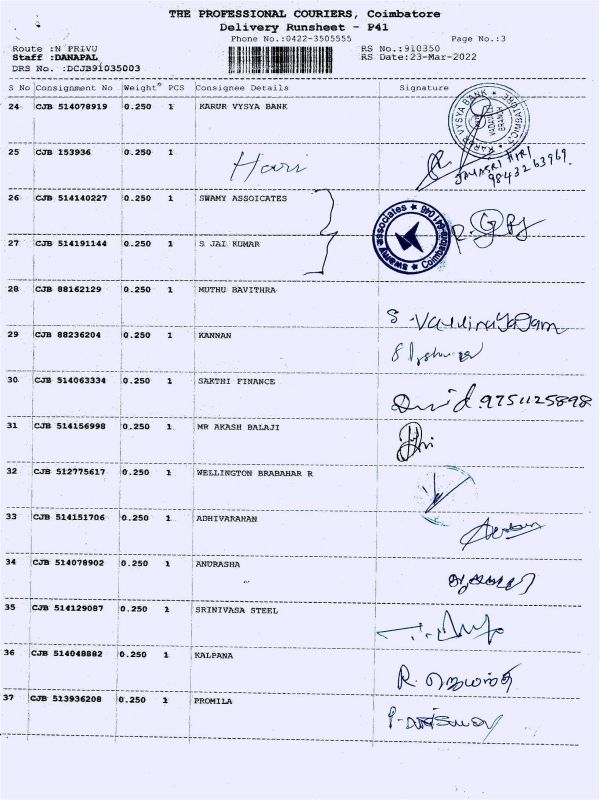 THE PROFESSIONAL COURIERS, Coimbatore
Delivery Runsheet - P41
Phone No.:0422-3505555 Page No.:3
Route :N PRIVU RS No.:910350
Staff :DANAPAL RS Date:23-Mar-2022
DRS No. :DCJB91035003
S No Consignment No Weight PCS Consignee Details Signature
24 CJB 514078919 0.250 1 KARUR VYSYA BANK
KARUR VYSYA BANK ★ BRANCH
25 CJB 153936 0.250 1 Hari
9843263969
26 CJB 514140227 0.250 1 SWAMY ASSOICATES
swamy associates ★ Coimbatore-641 046
27 CJB 514191144 0.250 1 S JAI KUMAR
28 CJB 88162129 0.250 1 MUTHU BAVITHRA
29 CJB 88236204 0.250 1 KANNAN
30 CJB 514063334 0.250 1 SAKTHI FINANCE
9751125898
31 CJB 514156998 0.250 1 MR AKASH BALAJI
32 CJB 512775617 0.250 1 WELLINGTON BRABAHAR R
33 CJB 514151706 0.250 1 ADHIVARAHAN
34 CJB 514078902 0.250 1 ANURASHA
35 CJB 514129087 0.250 1 SRINIVASA STEEL
36 CJB 514048882 0.250 1 KALPANA
37 CJB 513936208 0.250 1 PROMILA